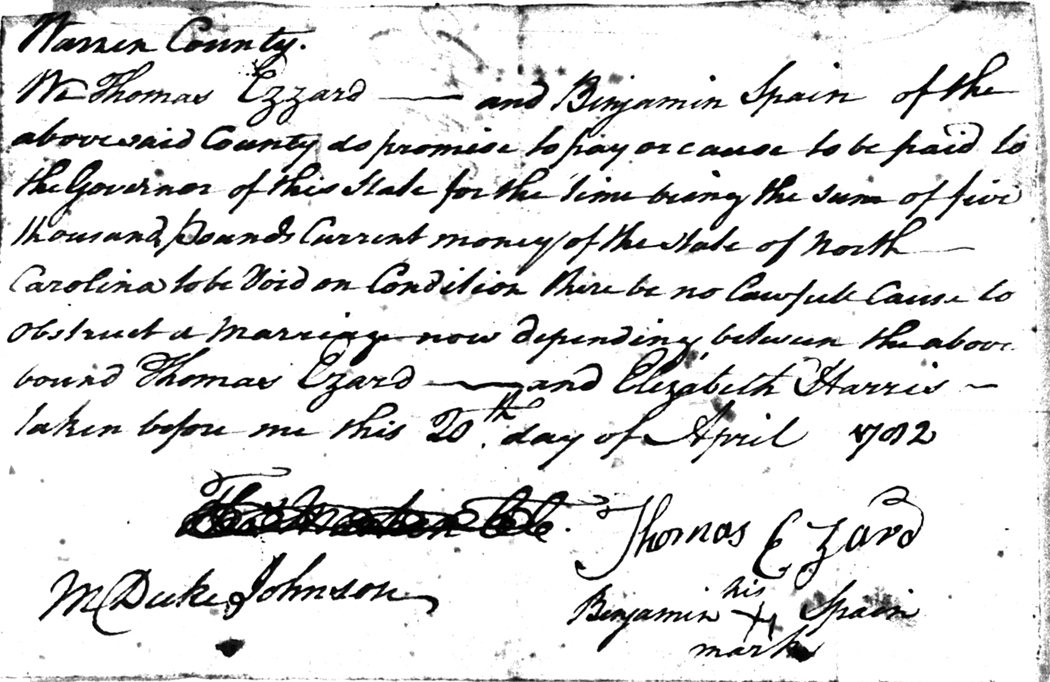 Warren County.
We Thomas Ezzard — and Binjamin Spain of the
abovesaid County do promise to pay or cause to be paid to
the Governor of this State for the time being the sum of five
thousand pounds Current money of the state of North
Carolina to be Void on Condition there be no Lawfull Cause to
obstruct a Marriage now depending between the above
bound Thomas Ezard — and Elizabeth Harris –
taken before me this 20th. day of April 1782
Thomas Ezard
M Duke Johnson
his
Binjamin X Spain
mark